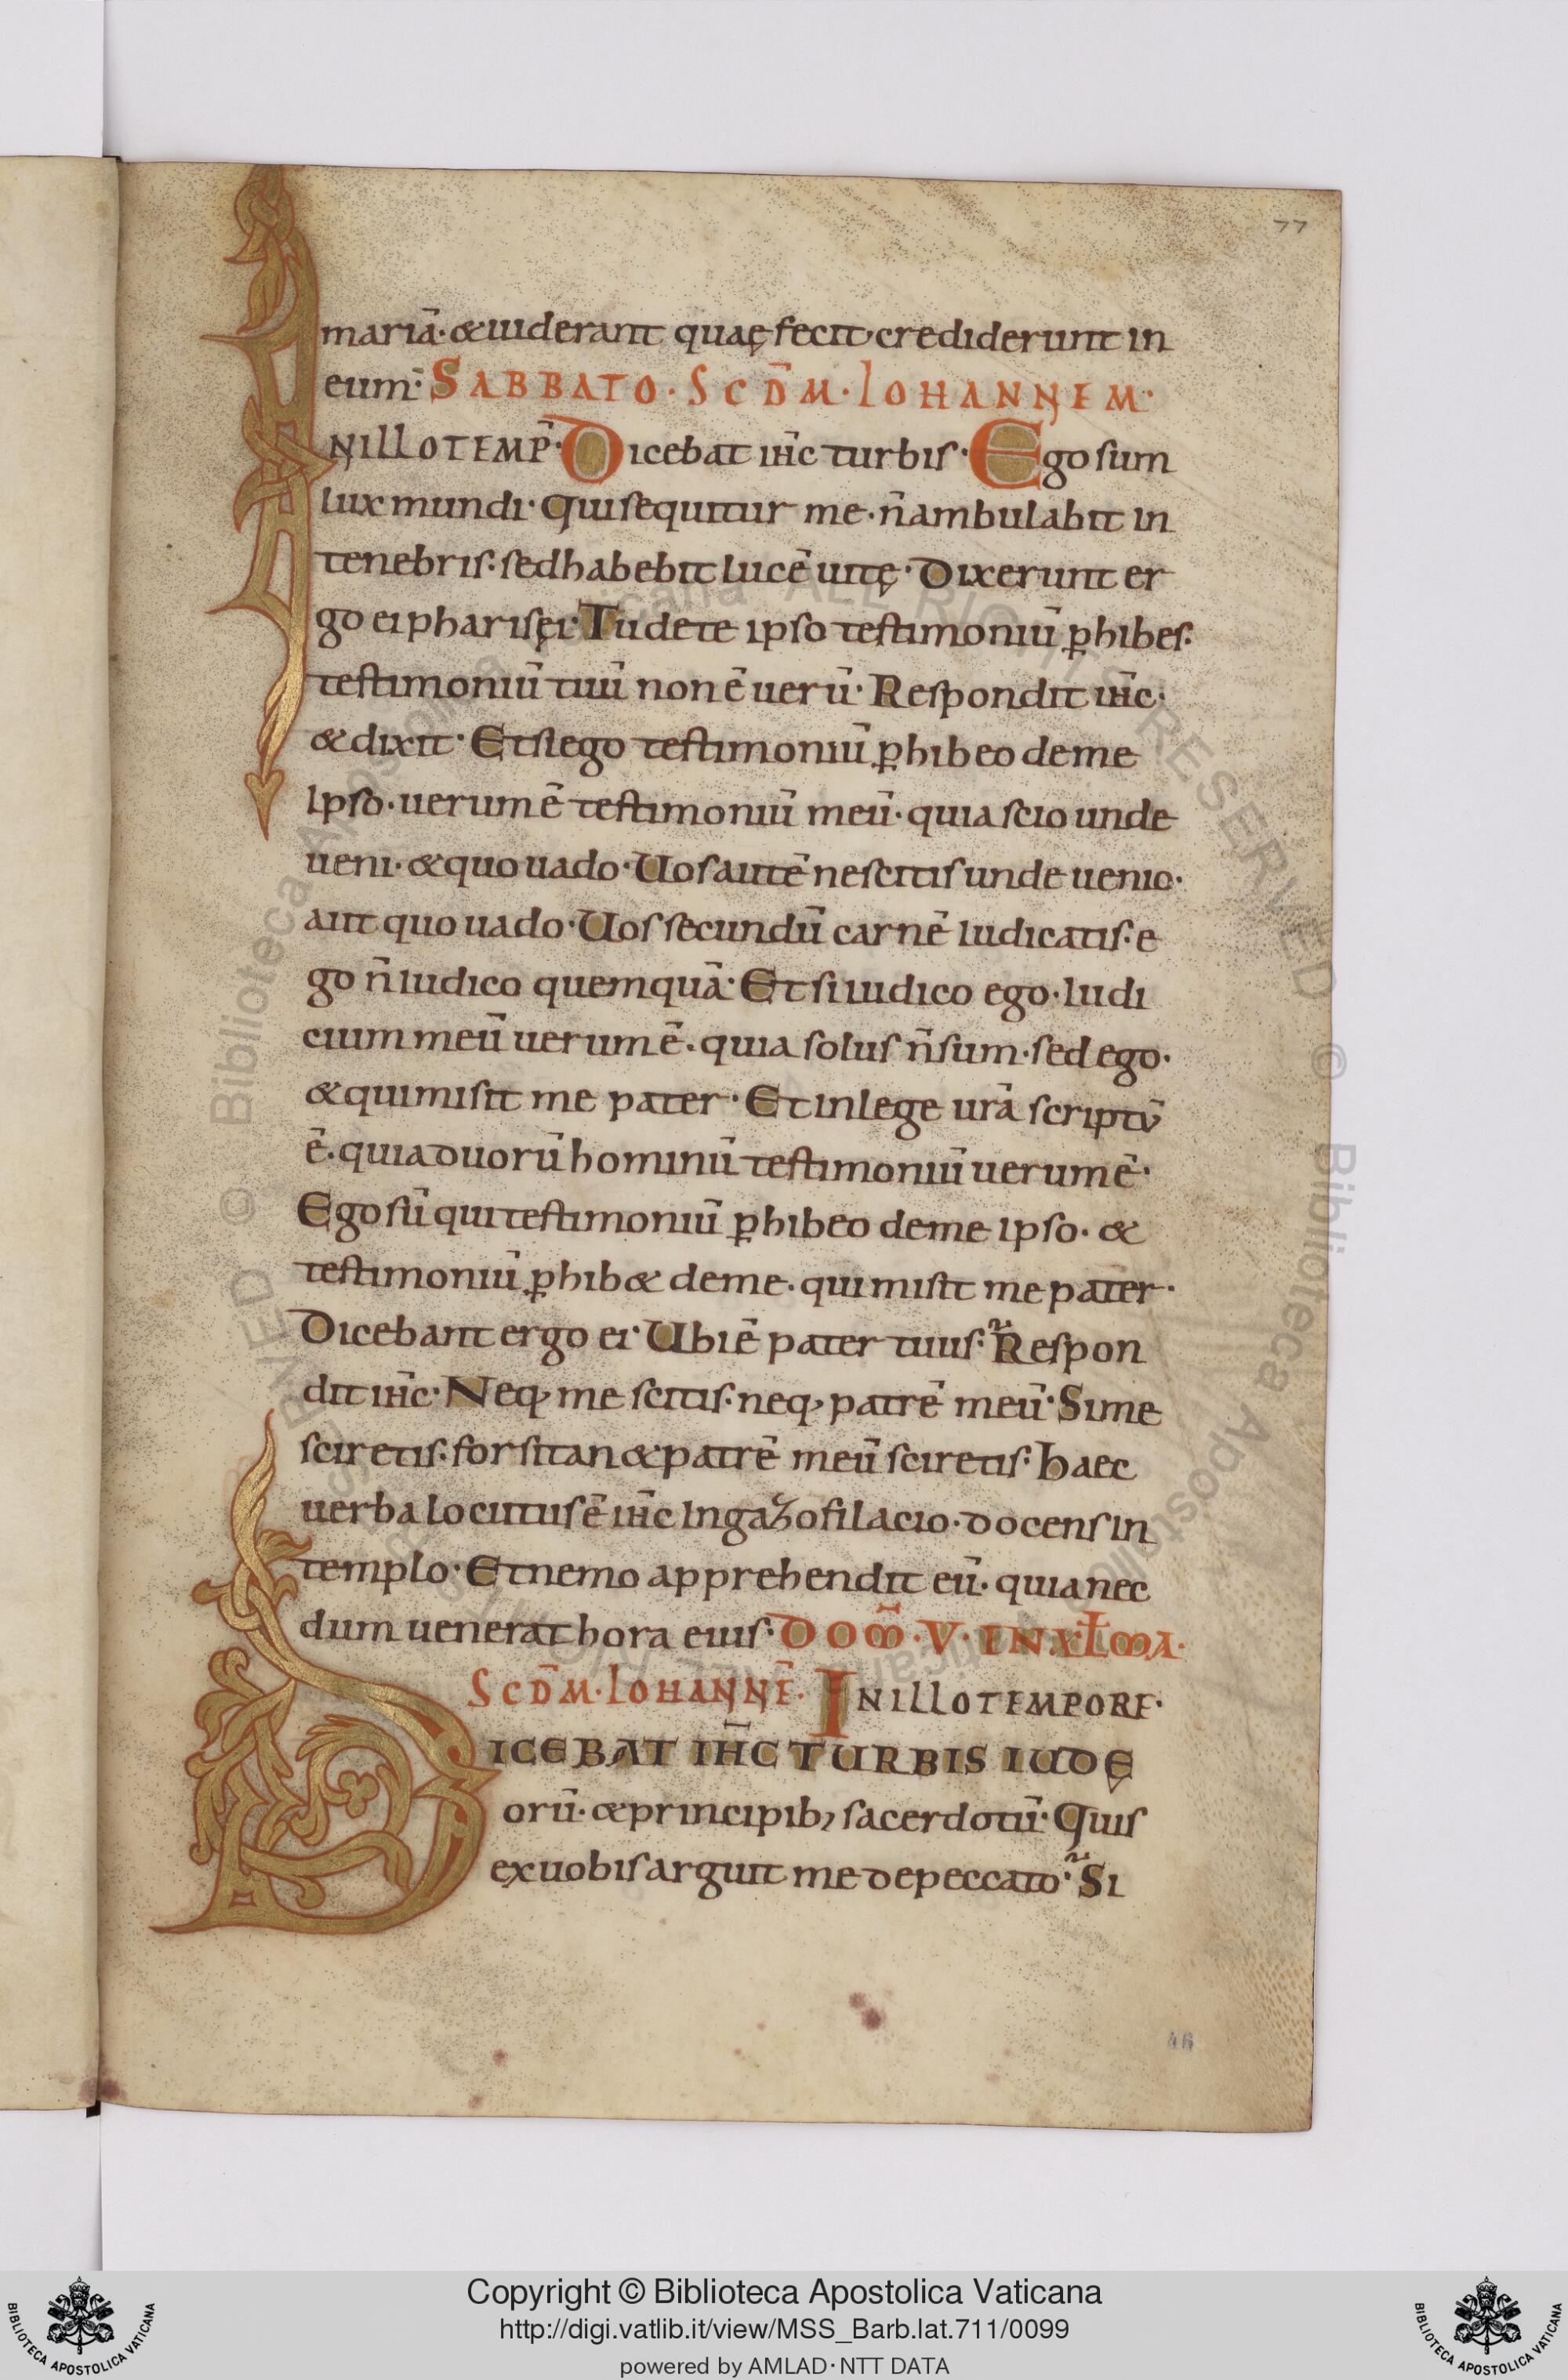 77
mariā· &uiderant quaę fecit· crediderunt in
eum·̄ SABBATO· SCD̄M· IOHANNEM·
INILLO TEMP̄· Dicebat ih̄c turbis· Ego sum
lux mundi· Qui sequitur me· n̄ ambulabit in
tenebris· sed habebit lucē uitę· Dixerunt er
go ei pharisęi· Tu de te ipso testimoniū ꝑhibes·
testimoniū tuū non ē uerū· Respondit ih̄c·
& dixit· Et si ego testimoniū ꝑhibeo de me
ipso· uerum ē testimoniū meū· quia scio unde
ueni· & quo uado· Uos autē nescitis unde uenio·
aut quo uado· Uos secundū carnē iudicatis· e
go n̄ iudico quemquā· Et si iudico ego· iudi
cium meū uerum ē· quia solus n̄ sum· sed ego·
& qui misit me pater· Et in lege ur̄a scriptū
ē· quia duorū hominū testimoniū uerum ē·
Ego sū qui testimoniū ꝑhibeo de me ipso· &
testimoniū ꝑhib& de me· qui misit me pater·
Dicebant ergo ei· Ubi ē pater tuus·̃ Respon
dit ih̄c· Neq; me scitis· neq; patrē meū· Si me
sciretis· forsitan & patrē meū sciretis· Haec
uerba locutus ē ih̄c in gazofilacio· docens in
templo· Et nemo apprehendit eū· quia nec
dum uenerat hora eius· DOM̄· V· IN XLMA·
SCD̄M· IOHANNĒ· IN ILLO TEMPORE·
DICEBAT IH̄C TURBIS IUDĘ
orū· & principib; sacerdotū· Quis
ex uobis arguit me de peccato·̃ Si
46
© Biblioteca Apostolica Vaticana ALL RIGHTS RESERVED © Biblioteca Apostolica Vaticana ALL RIGHTS RESERVED
Copyright © Biblioteca Apostolica Vaticana
http://digi.vatlib.it/view/MSS_Barb.lat.711/0099
powered by AMLAD·NTT DATA
BIBLIOTECA APOSTOLICA VATICANA
BIBLIOTECA APOSTOLICA VATICANA